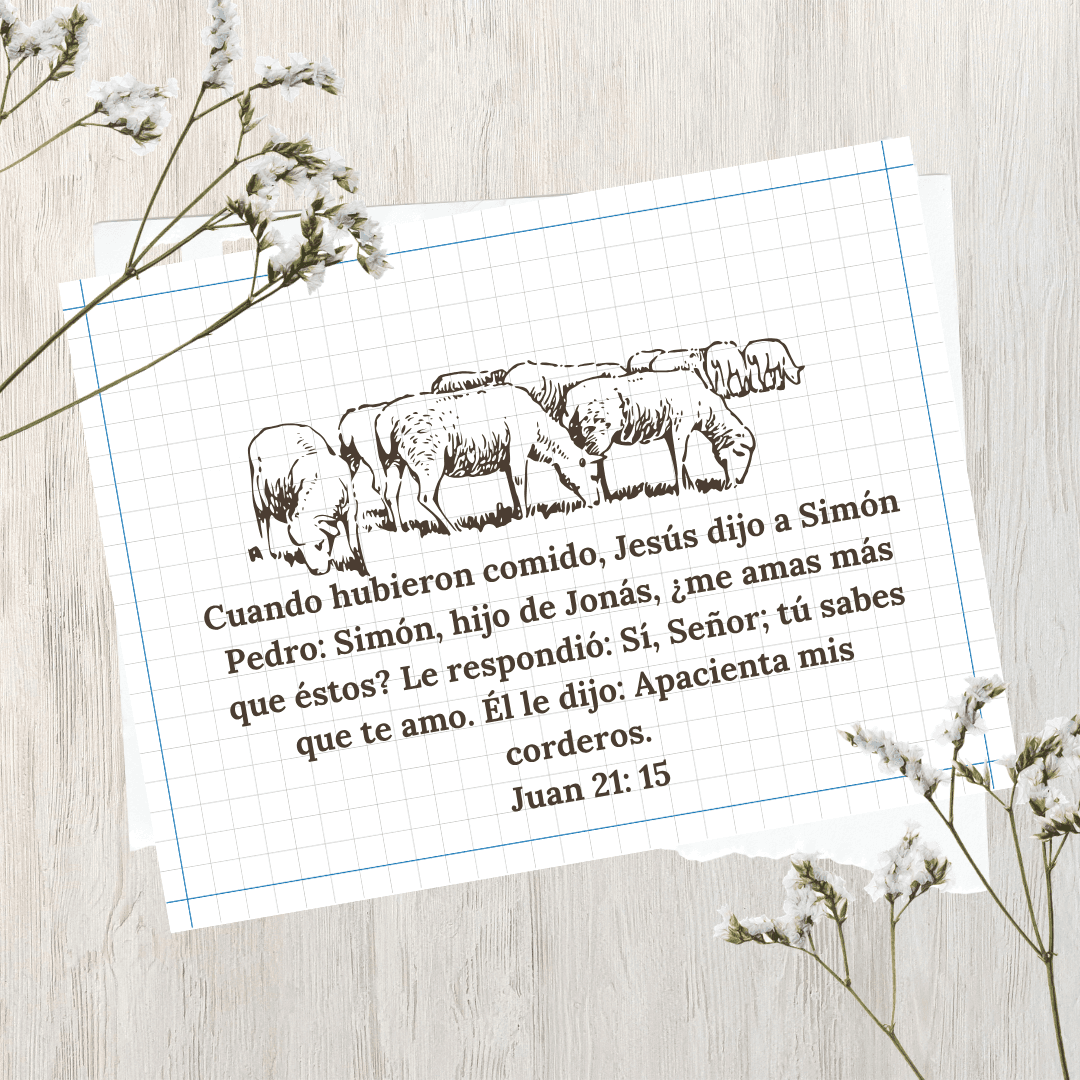 Cuando hubieron comido, Jesús dijo a Simón
Pedro: Simón, hijo de Jonás, ¿me amas más
que éstos? Le respondió: Sí, Señor; tú sabes
que te amo. Él le dijo: Apacienta mis
corderos.
Juan 21: 15